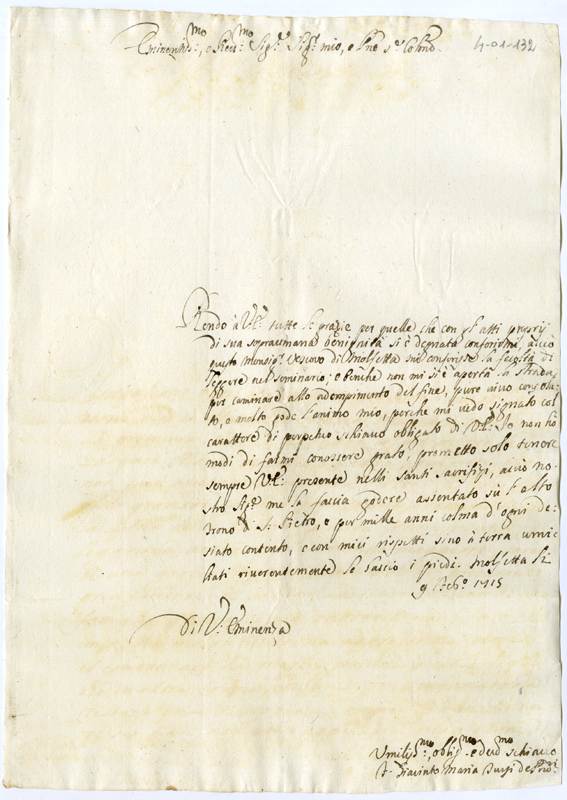 Eminentis:mo, e Rev:mo Sig.r Sig.r mio, e Pne s.e Colmo.
4-01-132
Rendo à V.E. tutte le grazie per quelle che con gl'atti proprij
di sua sopraumana benignità si è degnata conferirmi, acciò
questo Monsig.r Vescovo di Molfetta mi conferisse la
leggere nel seminario; e benche non mi si è aperta la strada
per caminare allo adempimento del fine, pure vivo consola-
to, e molto gode l'animo mio, perche mi vedo signato col
carattere di perpetuo schiavo obligato di V.E. Io non hò
modi di farmi conossere grato, prometto solo tenere
sempre V.E. presente nelli santi sacrifizj, acciò no-
stro Sig.re me la faccia godere assentato sù l'alto
trono di S. Pietro, e per mille anni colma d'ogni de-
siato contento, e con miei rispetti sino à terra umi-
liati riverentemente le baccio i piedi. Molfetta li
9 1715
Di V.a Eminenza
Umiliss:mo, oblig:mo e dev:mo schiavo
F. Giacinto Maria